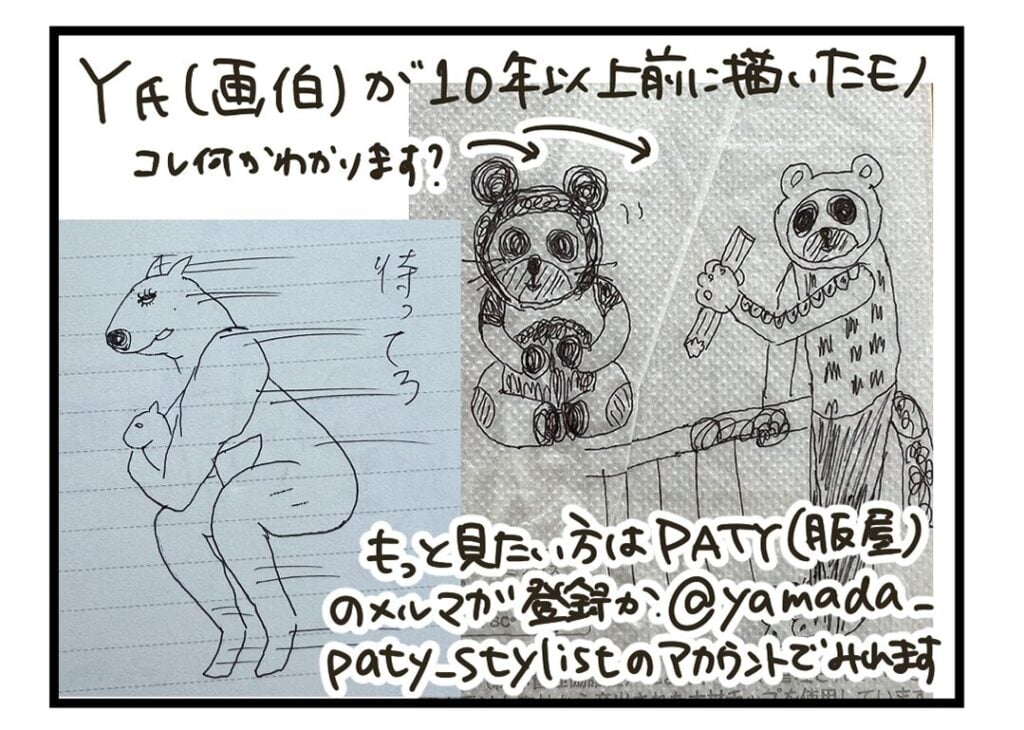 Y氏(画伯)が10年以上前に描いたモノ
コレ何かわかります?
待ってろ
もっと見たい方はPATY(服屋)
のメルマガ登録か@yamada_
paty_stylistのアカウントでみれます